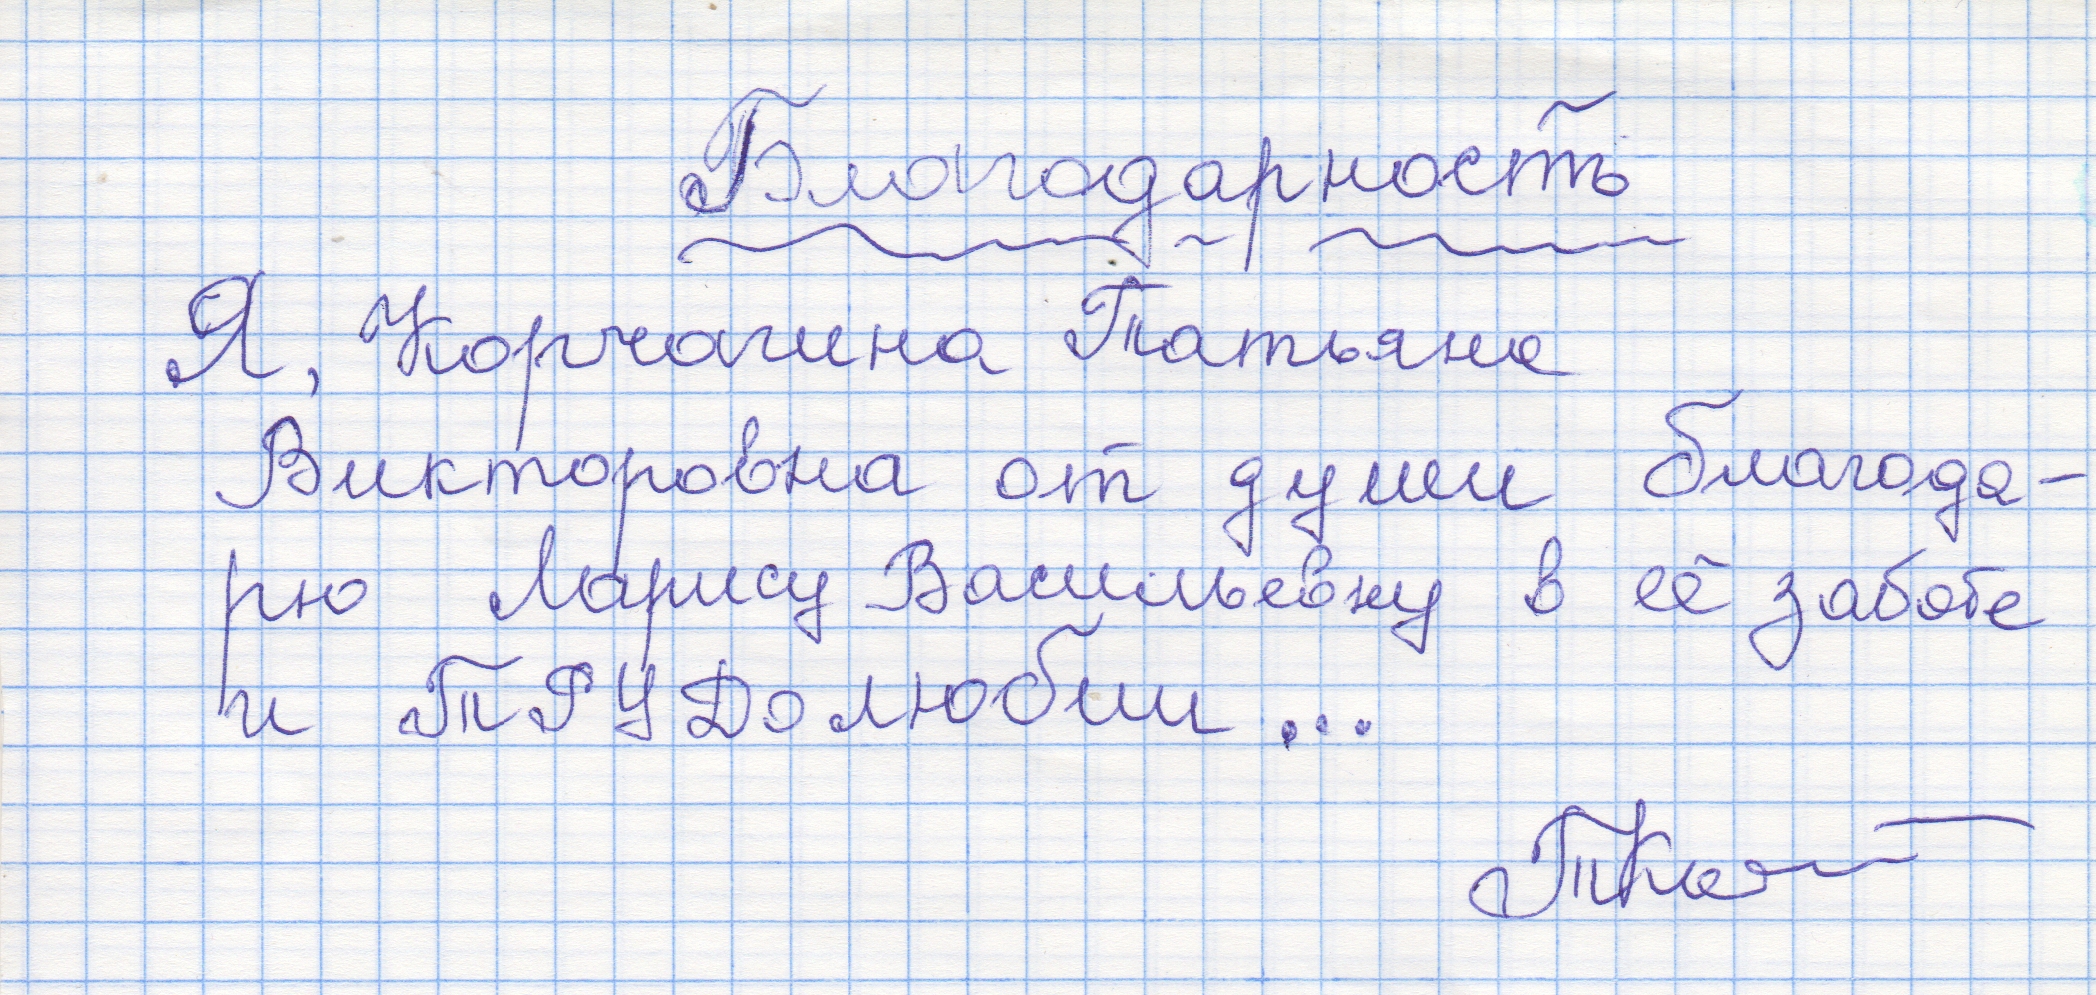 Благодарность
Я, Корчагина Татьяна
Викторовна от души благода-
рю Ларису Васильевну в её заботе
и ТРУДолюбии ...